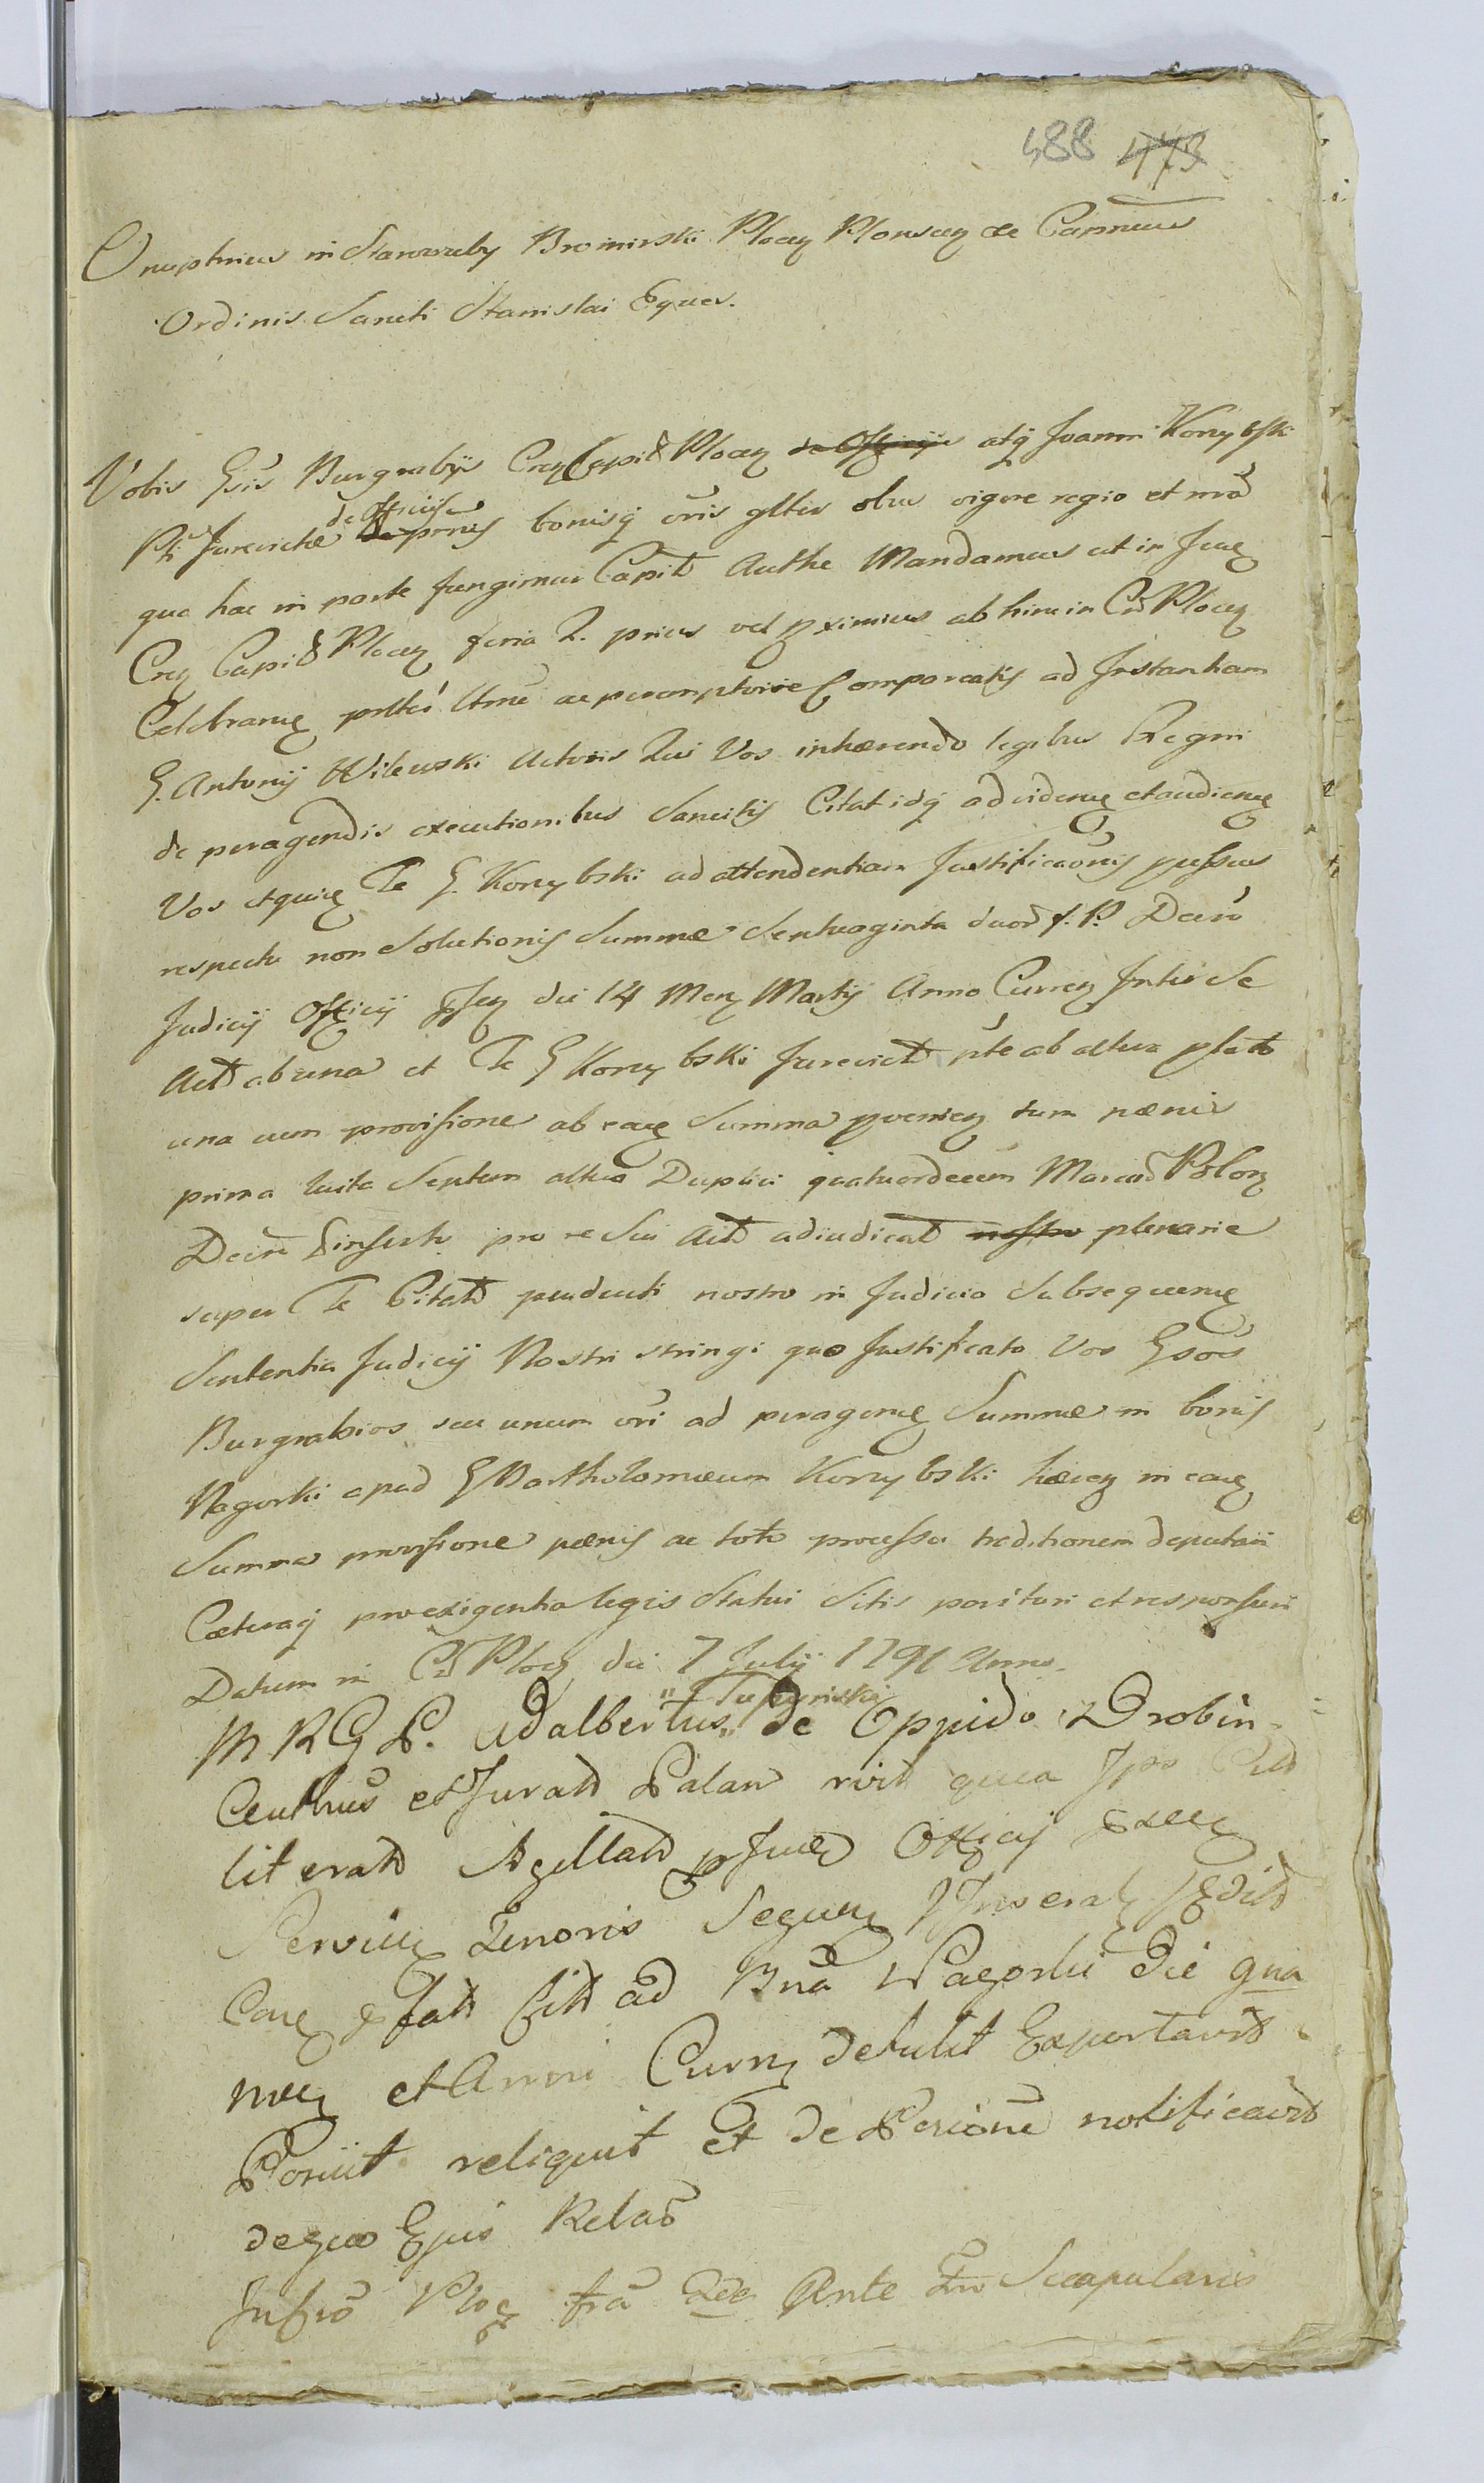 488 473
Onuphrius in Starorzeby Bromirski Plocen Plonscen &c Capneus
Ordinis Sancti Stanislai Eques.
Vobis Gsis Burgrabijs Cren Capitl Plocen de Officijs atq Joanni Korzybski
de Officijs
Pti Jurevictae de psnis bonisq vris gltis olbus vigore regio et nrâ
qua hac in parte fungimur Capitt Authe Mandamus ut in Juce
Cren Capitl Plocen feria 2. prius vel pximius ab hinc in Cro Plocen
Celebrane psltr ltme ac peremptorie Compareatis ad Instantiam
G. Antonij Wilewski Actoris Qui Vos inhaerendo legibus Regni
de peragendis executionibus Sancitis Citat idq ad videne et audiene
Vos utquie Te G. Korzybski ad attendentiam Justificaonis pussus
respectu non Solutionis Summae Septuaginta duor f. P. Dcro
Judicij Officij psen die 14 Men Martij Anno Curren Inter Se
Actt ab una et Te G Korzybski Jurevictt pte ab altera plato
una cum provisione ab eaue Summa pvenien tum paenis
prima luita Septem altera Duplici quatuordecem Marcar Polon
Dcro insertis pro re Sui Actt adiudicatt nostro plenarie
super Te Citatt pendenti nostro in Judicio Subsequene
Sententia Judicij Nostri stringi quo Justificato Vos Gsos
Burgrabios seu unum vri ad peragene Summae in bonis
Nagorki apud G Bartholomaeum Korzybski haeren in eaue
Summa provisione paenis ac toto processu traditionem deputari
Caeteraq pro exigentia legis Statui Sitis parituri et responsuri
Datum in Cro Plocen die 7 Julij 1791 Anno.
M R G P. Adalbertus de Oppido Drobin
Centhus et Juratt Palam rvit quia Ipse Citt
literatt Sigillatt p Juce Officij
Serviue Tenoris Sequen
Caue ptatt Citt ad Bna Nagorki Die qna
nven et Anni Curren detulit Exportavitt
Posuit reliquit et de Posicione notificavitt
de quo Ejus Relao
In Cro Plocen fra 2da Ante Fm Scapularis